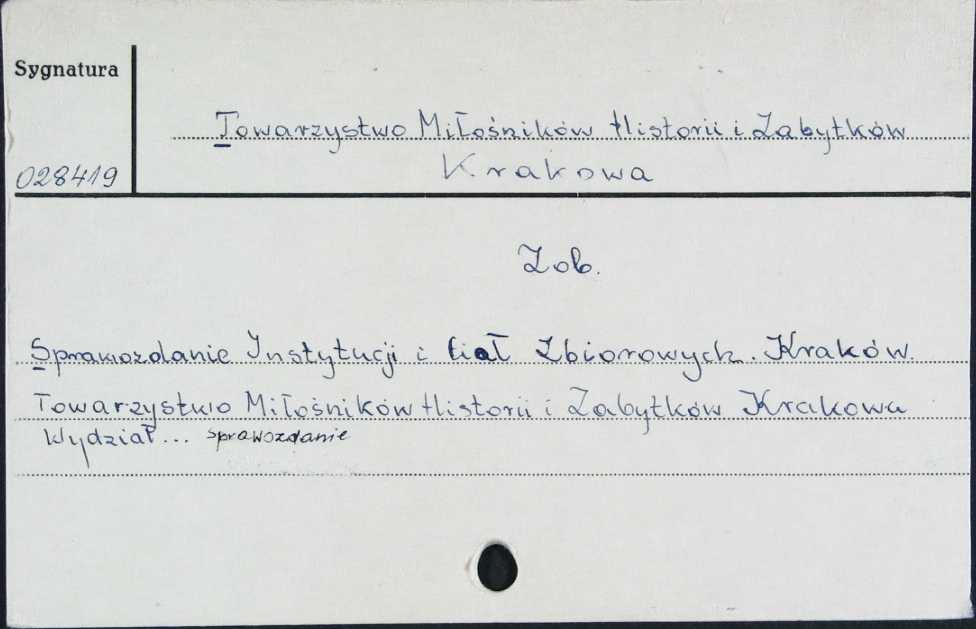 Sygnatura
Towarzystwo Miłośników Historii i Zabytków
028419
Krakowa
Zob.
Sprawozdanie Instytucji i Ciał Zbiorowych. Kraków.
Towarzystwo Miłośników Historii i Zabytków Krakowa
Wydział... sprawozdanie